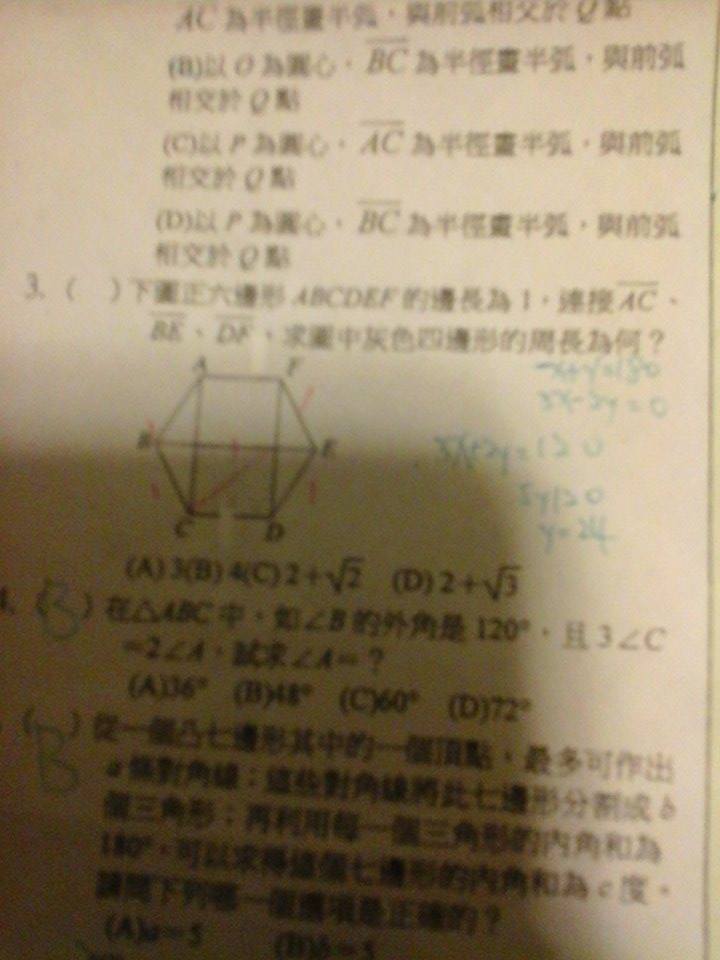 AC 為半徑畫半弧，與前弧相交於 Q 點
(B)以 O 為圓心，BC 為半徑畫半弧，與前弧
相交於 Q 點
(C)以 P 為圓心，AC 為半徑畫半弧，與前弧
相交於 Q 點
(D)以 P 為圓心，BC 為半徑畫半弧，與前弧
相交於 Q 點
3. （ ）下圖正六邊形 ABCDEF 的邊長為 1，連接 AC、
BE、DF，求圖中灰色四邊形的周長為何？
x+y=180
A F
B E
C D
y=24
(A) 3(B) 4(C) 2+√2 (D) 2+√3
4.（B）在△ABC 中，如∠B 的外角是 120°，且 3∠C
=2∠A，試求∠A=？
(A)36° (B)48° (C)60° (D)72°
（B）從一個凸七邊形其中的一個頂點，最多可作出
a 條對角線；這些對角線將此七邊形分割成 b
個三角形；再利用每一個三角形的內角和為
180°，可以求得這個七邊形的內角和為 c 度。
請問下列哪一個選項是正確的？
(A)a=5 (B)b=5